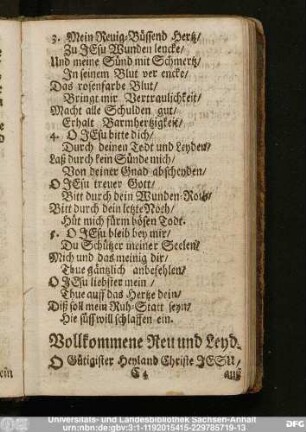 3. Mein Reuig-Büssend Hertz/
Zu JEsu Wunden lencke/
Und meine Sünd mit Schmertz/
In seinem Blut ver encke/
Das rosenfarbe Blut/
Bringt mir Vertraulichkeit/
Macht alle Schulden gut/
Erhält Barmhertzigkeit/
4. O JEsu bitte dich/
Durch deinen Todt und Leyden/
Laß durch kein Sünde mich/
Von deiner Gnad abscheyden/
O JEsu treuer Gott/
Bitt durch dein Wunden-Roth/
Bitt durch dein letzte Noth/
Hüt mich fürm bösen Todt.
5. O JEsu bleib bey mir/
Du Schützer meiner Seelen/
Mich und das meinig dir/
Thue gäntzlich anbefehlen/
O JEsu liebster mein/
Thue auff das Hertze dein/
Diß soll mein Ruh-Statt seyn/
Hie süß will schlaffen ein.
Vollkommene Reu und Leyd.
O Gütigister Heyland Christe JESU/
C 4 auß
Universitäts- und Landesbibliothek Sachsen-Anhalt
urn:nbn:de:gbv:3:1-1192015415-229785719-13
DFG